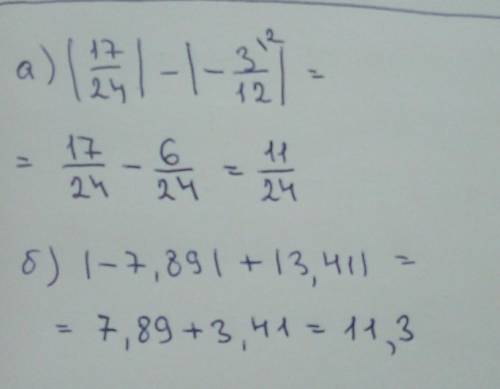 а) |17/24| - |-3\2/12| =
= 17/24 - 6/24 = 11/24
б) |-7,89| + |3,41| =
= 7,89 + 3,41 = 11,3